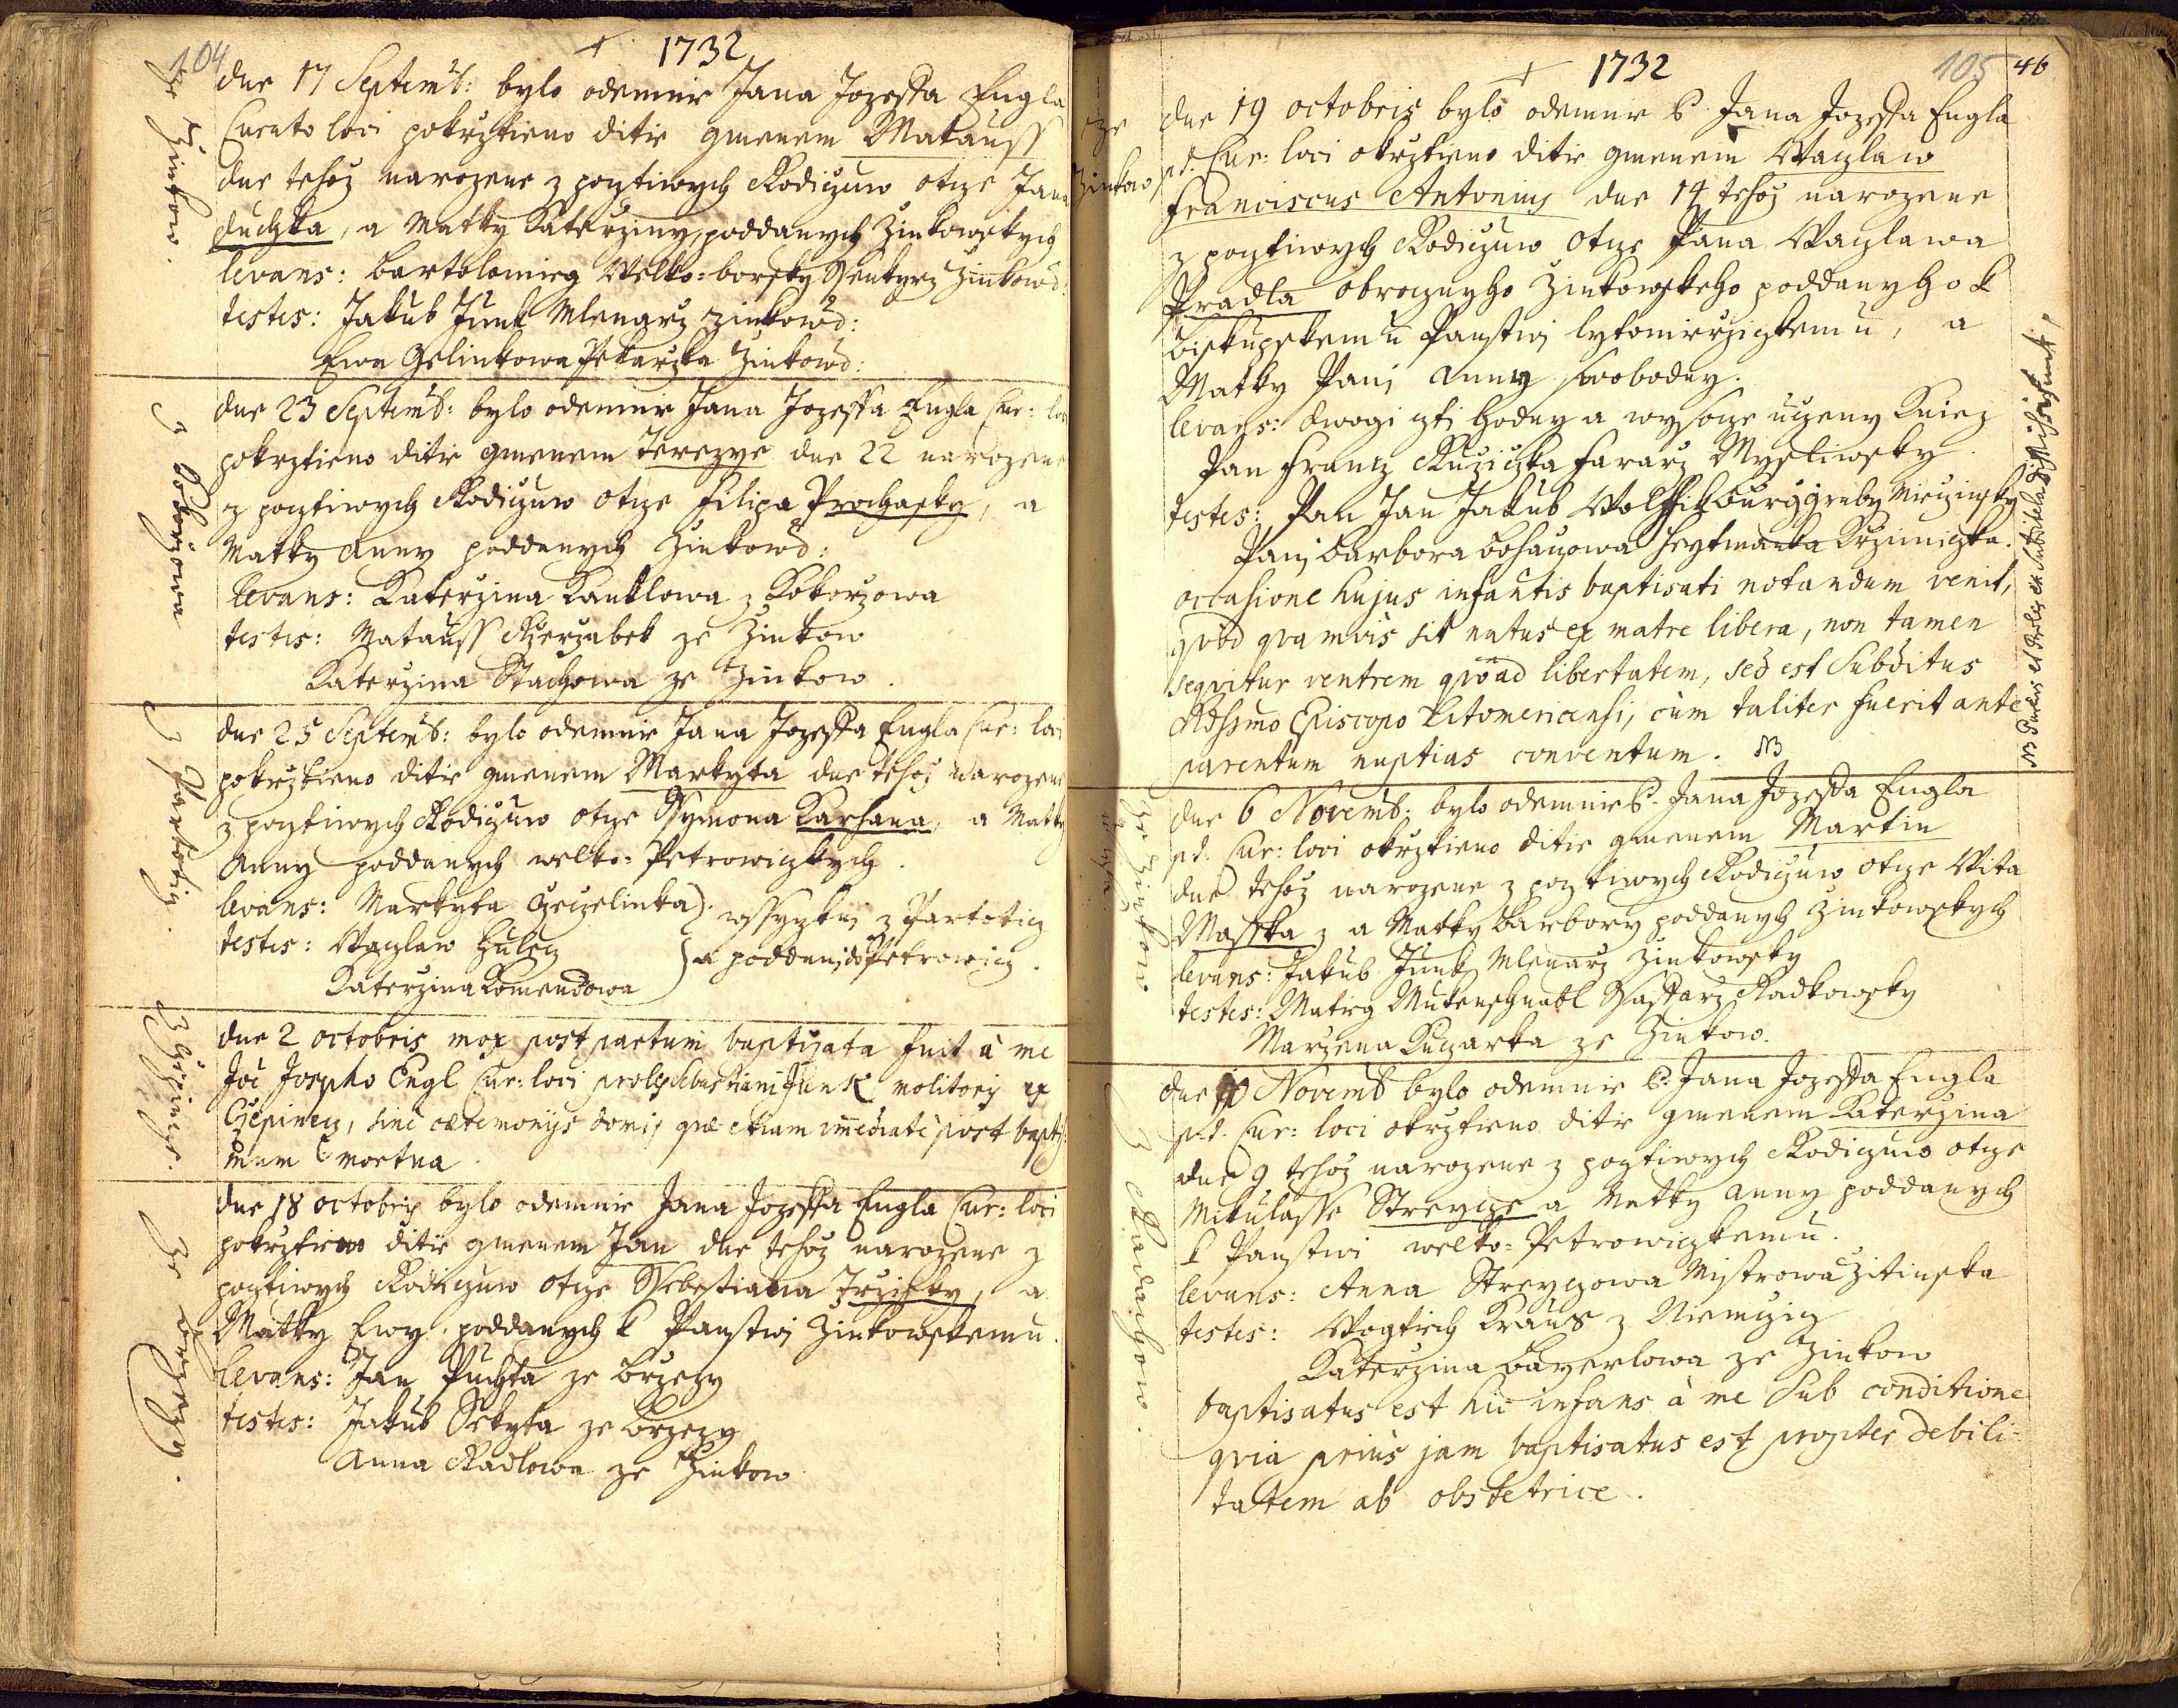 104
1732
ze Zinkow.
dne 17 Septemb: bylo odemnie Jana Jozeffa Engla
Curato loci pokrztieno ditie gmenem Matauss
dne tehoz narozene z pocztiwych Rodiczuw otcze Jana
duchka, a Matky Katerziny, poddanych Zinkowskych
levans: Bartolomieg Welko=borsky Ssenkyrz Zinkows:
testes: Jakub Junk Mlenarz zinkows:
Ewa Gelinkowa Pekarzka Zinkows:
z Kokorzowa
dne 23 Septemb: bylo odemnie Jana Jozeffa Engla Cur: loci
pokrztieno ditie gmenem Terezye dne 22 narozene
z pocztiwych Rodiczuw otcze Filipa Prochasky, a
Matky Anny poddanych Zinkows:
levans: Katerzina Kantlowa z Kokorzowa
testes: Matauss Rzerzabek ze Zinkow
Katerzina Stachowa ze Zinkow.
z Partotic.
dne 25 Septemb: bylo odemnie Jana Jozeffa Engla Cur: loci
pokrztieno ditie gmenem Markyta dne tehoz narozene
z pocztiwych Rodiczuw otcze Ssymona Karhana, a Matky
Anny poddanych welko=Petrowiczkych.
levans: Markyta Czeczelinka) wssyczkni z Partoticz
testes: Waczlaw Hulecz } a poddani do Petrowicz.
Katerzina Komendowa
z Czepince.
dne 2 octobris mox post partum baptizata fuit à me
Joë Josepho Engl Cur: loci proles Sebastiani Junk molitoris ex
Czepinecz, sine cæremonijs domi, quæ etiam immediatè post baptis:
mum mortua.
ze Brzezy.
dne 18 octobris bylo odemnie Jana Jozeffa Engla Cur: loci
pokrztieno ditie gmenem Jan dne tehoz narozene z
pocztiwych Rodiczuw otcze Ssebestiana Jrzicky, a
Matky Ewy poddanych k Panstwi Zinkowskemu.
levans: Jan Puchta ze Brzezy
testes: Jakub Sekyta ze Brzezy
Anna Radlowa ze Zinkow
1732
105 46
ze
Zinkow
dne 19 octobris bylo odemnie P. Jana Jozeffa Engla
p.t. Cur: loci okrztieno ditie gmenem Waczlaw
Franciscus Antonius dne 14 tehoz narozene
z pocztiwych Rodiczuw otcze Pana Waczlawa
Pradla obrocznyho Zinkowskeho poddanyho k
Biskupskemu Panstwi lytomierzickemu, a
Matky Pani Anny swobodny.
levans: dwogi cti hodny a wysocze uczeny Kniez
Pan Frantz Ruziczka Fararz Mysliwsky.
testes: Pan Jan Jakub Wolffik Burggraby Nieczinsky
Pani Barbora Bohaczowa Heytmanka Krziniczka.
occasione hujus infantis baptisati notandum venit,
quòd quamvis sit natus ex matre libera, non tamen
sequitur ventrem quoad libertatem, sed est Subditus
Rdssmo Episcopo Litomericensi, cùm taliter fuerit ante
parentum nuptias conventum. NB
ze Zinkow
dne 6 Novemb: bylo odemnie P. Jana Jozeffa Engla
p.t. Cur: loci okrztieno ditie gmenem Martin
dne tehoz narozene z pocztiwych Rodiczuw otcze Wita
Masska z a Matky Barbory poddanych Zinkowskych
levans: Jakub Junk Mlenarz Zinkowsky
testes: Matieg Mutenschnabl Ssaffarz Radkowsky
Marzena Kuczarka ze Zinkow.
z Radachow.
dne 10 Novemb bylo odemnie P: Jana Jozeffa Engla
p.t. Cur: loci okrztieno ditie gmenem Katerzina
dne 9 tehoz narozene z pocztiwych Rodiczuw otcze
Mikulasse Streycze a Matky Anny poddanych
k Panstwi welko=Petrowiczkemu.
levans: Anna Streyczowa Mistrowa Zitinska
testes: Wogtiech Kraus z Niemczicz
Katerzina Bayerlowa ze Zinkow
baptisatus est hic infans à me Sub conditione
quia priùs jam baptisatus est propter debili=
tatem ab obstetrice.